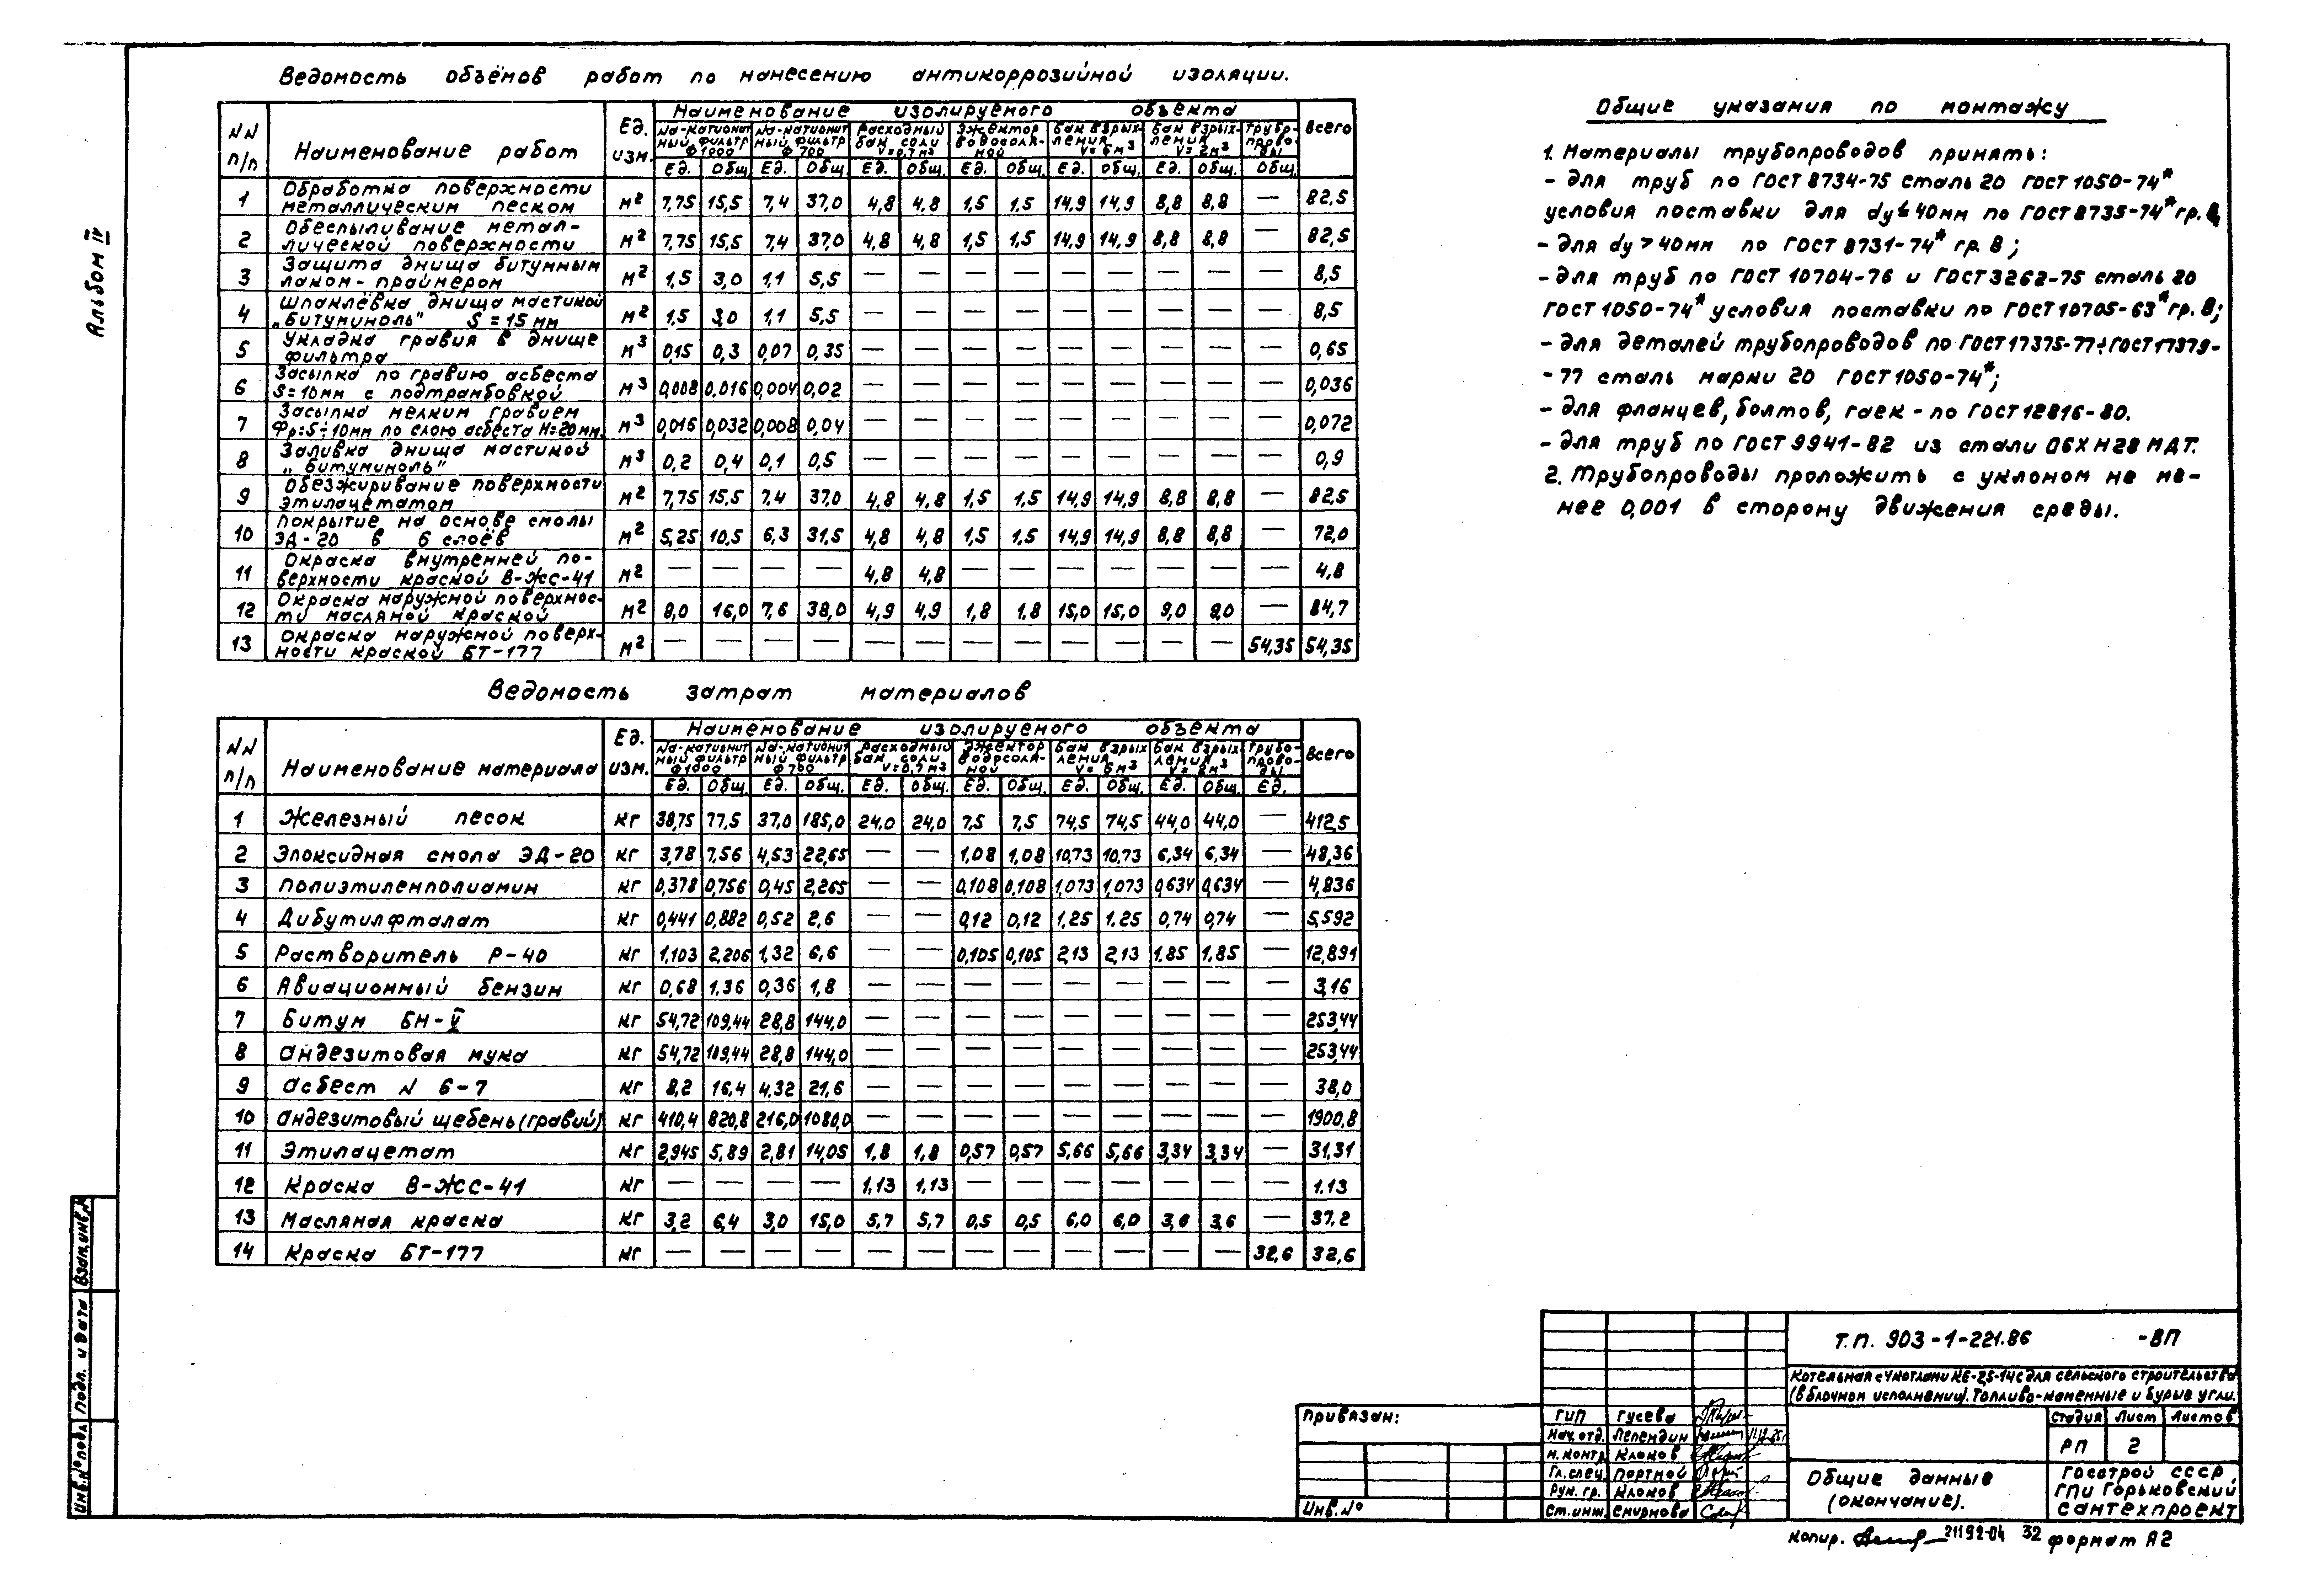 Альбом IV
Ведомость объёмов работ по нанесению антикоррозийной изоляции.
NN п/п | Наименование работ | Ед. изм. | Наименование изолируемого объекта | Всего
Na-катионитный фильтр Ф1000 | Na-катионитный фильтр Ф700 | Расходный бак соли V=0,7м³ | Эжектор водосоляной | Бак взрыхления V=6м³ | Бак взрыхления V=2м³ | Трубопроводы
Ед. | Общ. | Ед. | Общ. | Ед. | Общ. | Ед. | Общ. | Ед. | Общ. | Ед. | Общ. | Общ.
1 | Обработка поверхности металлическим песком | м² | 7,75 | 15,5 | 7,4 | 37,0 | 4,8 | 4,8 | 1,5 | 1,5 | 14,9 | 14,9 | 8,8 | 8,8 | — | 82,5
2 | Обеспыливание металлической поверхности | м² | 7,75 | 15,5 | 7,4 | 37,0 | 4,8 | 4,8 | 1,5 | 1,5 | 14,9 | 14,9 | 8,8 | 8,8 | — | 82,5
3 | Защита днища битумным лаком-праймером | м² | 1,5 | 3,0 | 1,1 | 5,5 | — | — | — | — | — | — | — | — | — | 8,5
4 | Шпаклёвка днища мастикой „Битуминоль" S=15мм | м² | 1,5 | 3,0 | 1,1 | 5,5 | — | — | — | — | — | — | — | — | — | 8,5
5 | Укладка гравия в днище фильтра | м³ | 0,15 | 0,3 | 0,07 | 0,35 | — | — | — | — | — | — | — | — | — | 0,65
6 | Засыпка по гравию асбеста S=10мм с подтрамбовкой | м³ | 0,008 | 0,016 | 0,004 | 0,02 | — | — | — | — | — | — | — | — | — | 0,036
7 | Засыпка мелким гравием Фр=5÷10мм по слою асбеста H=20мм. | м³ | 0,016 | 0,032 | 0,008 | 0,04 | — | — | — | — | — | — | — | — | — | 0,072
8 | Заливка днища мастикой „Битуминоль" | м³ | 0,2 | 0,4 | 0,1 | 0,5 | — | — | — | — | — | — | — | — | — | 0,9
9 | Обезжиривание поверхности этилацетатом | м² | 7,75 | 15,5 | 7,4 | 37,0 | 4,8 | 4,8 | 1,5 | 1,5 | 14,9 | 14,9 | 8,8 | 8,8 | — | 82,5
10 | Покрытие на основе смолы ЭД-20 в 6 слоёв | м² | 5,25 | 10,5 | 6,3 | 31,5 | 4,8 | 4,8 | 1,5 | 1,5 | 14,9 | 14,9 | 8,8 | 8,8 | — | 72,0
11 | Окраска внутренней поверхности краской В-ЖС-41 | м² | — | — | — | — | 4,8 | 4,8 | — | — | — | — | — | — | — | 4,8
12 | Окраска наружной поверхности масляной краской | м² | 8,0 | 16,0 | 7,6 | 38,0 | 4,9 | 4,9 | 1,8 | 1,8 | 15,0 | 15,0 | 9,0 | 9,0 | — | 84,7
13 | Окраска наружной поверхности краской БТ-177 | м² | — | — | — | — | — | — | — | — | — | — | — | — | 54,35 | 54,35
Ведомость затрат материалов
NN п/п | Наименование материала | Ед. изм. | Наименование изолируемого объекта | Всего
Na-катионитный фильтр Ф1000 | Na-катионитный фильтр Ф700 | Расходный бак соли V=0,7м³ | Эжектор водосоляной | Бак взрыхления V=6м³ | Бак взрыхления V=2м³ | Трубопроводы
Ед. | Общ. | Ед. | Общ. | Ед. | Общ. | Ед. | Общ. | Ед. | Общ. | Ед. | Общ. | Ед.
1 | Железный песок | кг | 38,75 | 77,5 | 37,0 | 185,0 | 24,0 | 24,0 | 7,5 | 7,5 | 74,5 | 74,5 | 44,0 | 44,0 | — | 412,5
2 | Эпоксидная смола ЭД-20 | кг | 3,78 | 7,56 | 4,53 | 22,65 | — | — | 1,08 | 1,08 | 10,73 | 10,73 | 6,34 | 6,34 | — | 48,36
3 | Полиэтиленполиамин | кг | 0,378 | 0,756 | 0,45 | 2,265 | — | — | 0,108 | 0,108 | 1,073 | 1,073 | 0,634 | 0,634 | — | 4,836
4 | Дибутилфталат | кг | 0,441 | 0,882 | 0,52 | 2,6 | — | — | 0,12 | 0,12 | 1,25 | 1.25 | 0,74 | 0,74 | — | 5,592
5 | Растворитель Р-40 | кг | 1,103 | 2,206 | 1,32 | 6,6 | — | — | 0,105 | 0,105 | 2,13 | 2,13 | 1,85 | 1,85 | — | 12,891
6 | Авиационный бензин | кг | 0,68 | 1.36 | 0,36 | 1,8 | — | — | — | — | — | — | — | — | — | 3,16
7 | Битум БН-V | кг | 54,72 | 109,44 | 28,8 | 144,0 | — | — | — | — | — | — | — | — | — | 253,44
8 | Андезитовая мука | кг | 54,72 | 109,44 | 28,8 | 144,0 | — | — | — | — | — | — | — | — | — | 253,44
9 | Асбест N 6-7 | кг | 8,2 | 16,4 | 4,32 | 21,6 | — | — | — | — | — | — | — | — | — | 38,0
10 | Андезитовый щебень (гравий) | кг | 410,4 | 820,8 | 216,0 | 1080,0 | — | — | — | — | — | — | — | — | — | 1900,8
11 | Этилацетат | кг | 2,945 | 5,89 | 2,81 | 14,05 | 1,8 | 1,8 | 0,57 | 0,57 | 5,66 | 5,66 | 3,34 | 3,34 | — | 31.31
12 | Краска В-ЖС-41 | кг | — | — | — | — | 1,13 | 1,13 | — | — | — | — | — | — | — | 1.13
13 | Масляная краска | кг | 3,2 | 6,4 | 3,0 | 15,0 | 5,7 | 5,7 | 0,5 | 0,5 | 6,0 | 6,0 | 3,6 | 3,6 | — | 37.2
14 | Краска БТ-177 | кг | — | — | — | — | — | — | — | — | — | — | — | — | 32,6 | 32,6
Общие указания по монтажу
1. Материалы трубопроводов принять:
- для труб по ГОСТ 8734-75 сталь 20 ГОСТ 1050-74*
условия поставки для dy≤40мм по ГОСТ 8735-74* гр. В,
- для dy>40мм по ГОСТ 8731-74* гр. В;
- для труб по ГОСТ 10704-76 и ГОСТ 3262-75 сталь 20
ГОСТ 1050-74* условия поставки по ГОСТ 10705-63* гр. В;
- для деталей трубопроводов по ГОСТ 17375-77÷ГОСТ 17379-
-77 сталь марки 20 ГОСТ 1050-74*;
- для фланцев, болтов, гаек - по ГОСТ 12816-80.
- для труб по ГОСТ 9941-82 из стали 06ХН28МДТ.
2. Трубопроводы проложить с уклоном не ме-
нее 0,001 в сторону движения среды.
Инв.№подл. | Подп. и дата | Взам.инв.№
Привязан:
Инв.№
Т.П. 903-1-221.86 -ВП
Котельная с 4 котлами КЕ-2,5-14с для сельского строительства
(в блочном исполнении). Топливо-каменные и бурые угли.
ГИП Гусева
Нач.отд. Лепендин
Н.контр. Клоков
Гл.спец. Портной
Рук. гр. Клоков
Ст.инж. Смирнова
Стадия | Лист | Листов
РП | 2
Общие данные
(окончание).
Госстрой СССР,
ГПИ Горьковский
Сантехпроект
Копир. 21192-04 32 Формат А2